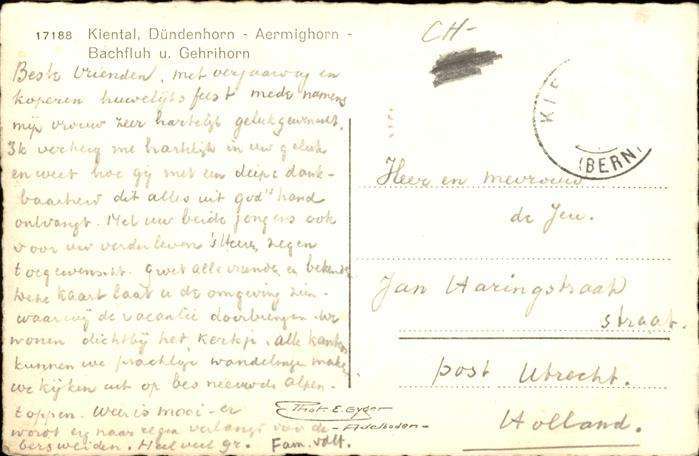 17188 Kiental, Dündenhorn - Aermighorn -
Bachfluh u. Gehrihorn
Beste Vrienden, met verjaardag en
koperen huwelijksfeest mede namens
mijn vrouw zeer hartelijk gelukgewenscht.
Ik verheug me hartelijk in uw geluk
en weet hoe gij met een diepe dank-
baarheid dit alles uit god's hand
ontvangt. Met uw beide jongens ook
voor uw verder leven 's Heren zegen
toegewenscht. Groet alle vrienden en bekenden
deze kaart laat u de omgeving zien
waar wij de vacantie doorbrengen. We
wonen dichtbij het kerkje. Alle kanten
kunnen we prachtige wandelingen maken
we kijken uit op besneeuwde alpen-
toppen. Weer is mooi - er
wordt erg naar regen verlangt voor de
bergweiden. Heel veel gr. Fam. Volt.
CH-
KI
(BERN)
Heer en mevrouw
de Jeu.
Jan Haringstraat
straat.
post Utrecht.
Holland.
Phot. E. Gyger
- Adelboden -